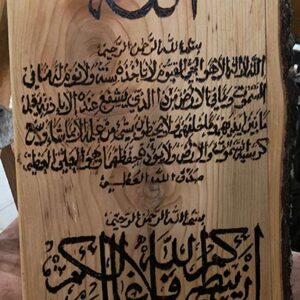 الله
بسم الله الرحمن الرحيم
الله لا إله إلا هو الحي القيوم لا تأخذه سنة ولا نوم له ما في
السموت وما في الأرض من ذا الذي يشفع عنده إلا بإذنه يعلم
ما بين أيديهم وما خلفهم ولا يحيطون بشيء من علمه إلا بما شاء وسع
كرسيه السموت والأرض ولا يؤده حفظهما وهو العلي العظيم
صدق الله العظيم
بسم الله الرحمن الرحيم
إن ينصركم الله فلا غالب لكم